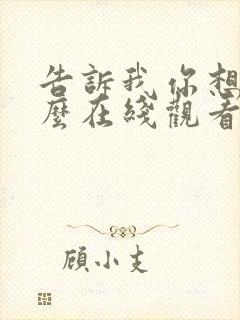 告訴我你想
麼在綫觀看
顧小支